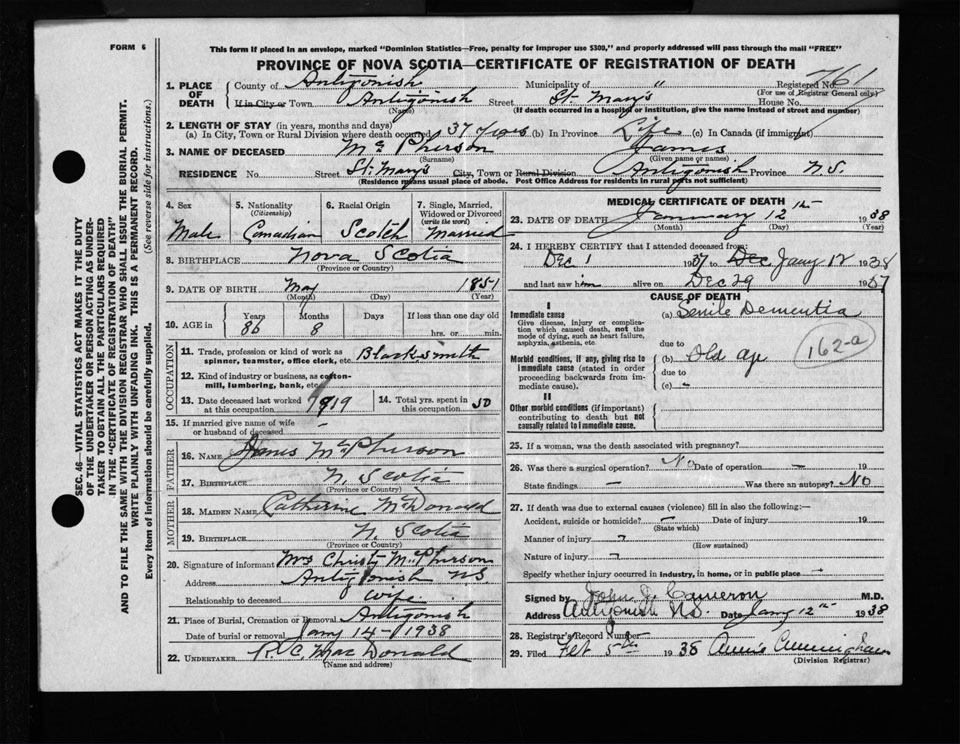 FORM 6
This form if placed in an envelope, marked "Dominion Statistics—Free, penalty for improper use $300," and properly addressed will pass through the mail "FREE"
PROVINCE OF NOVA SCOTIA—CERTIFICATE OF REGISTRATION OF DEATH
SEC. 46—VITAL STATISTICS ACT MAKES IT THE DUTY
OF THE UNDERTAKER OR PERSON ACTING AS UNDER-
TAKER TO OBTAIN ALL THE PARTICULARS REQUIRED
IN THE "CERTIFICATE OF REGISTRATION OF DEATH"
AND TO FILE THE SAME WITH THE DIVISION REGISTRAR WHO SHALL ISSUE THE BURIAL PERMIT.
WRITE PLAINLY WITH UNFADING INK. THIS IS A PERMANENT RECORD.
Every item of information should be carefully supplied. (See reverse side for instructions.)
1. PLACE OF DEATH County of Antigonish Municipality of " Registered No. 761
(For use of Registrar General only)
If in City or Town Antigonish Street St. Mary's House No.
(Name) (If death occurred in a hospital or institution, give the name instead of street and number)
2. LENGTH OF STAY (in years, months and days)
(a) In City, Town or Rural Division where death occurred 37 years (b) In Province Life (c) In Canada (if immigrant)
3. NAME OF DECEASED McPherson James
(Surname) (Given name or names)
RESIDENCE No. Street St. Mary's City, Town or Rural Division Antigonish Province N.S.
(Residence means usual place of abode. Post Office Address for residents in rural parts not sufficient)
4. Sex Male
5. Nationality (Citizenship) Canadian
6. Racial Origin Scotch
7. Single, Married, Widowed or Divorced (write the word) Married
8. BIRTHPLACE Nova Scotia
(Province or Country)
9. DATE OF BIRTH May 1851
(Month) (Day) (Year)
10. AGE in Years Months Days If less than one day old
86 8 hrs. or min.
OCCUPATION
11. Trade, profession or kind of work as spinner, teamster, office clerk, etc. Blacksmith
12. Kind of industry or business, as cotton-mill, lumbering, bank, etc.
13. Date deceased last worked at this occupation 1919 14. Total yrs. spent in this occupation 50
15. If married give name of wife or husband of deceased -
FATHER
16. NAME James McPherson
17. BIRTHPLACE N. Scotia
(Province or Country)
MOTHER
18. MAIDEN NAME Catherine McDonald
19. BIRTHPLACE N. Scotia
(Province or Country)
20. Signature of informant Mrs Christy McPherson
Address Antigonish N.S.
Relationship to deceased wife
21. Place of Burial, Cremation or Removal Antigonish
Date of burial or removal Jany 14 - 1938
22. UNDERTAKER R. C. MacDonald
(Name and address)
MEDICAL CERTIFICATE OF DEATH
23. DATE OF DEATH January 12th 1938
(Month) (Day) (Year)
24. I HEREBY CERTIFY that I attended deceased from:
Dec 1 1937 Dec Jany 12 1938
and last saw him alive on Dec 29 1937
CAUSE OF DEATH
I
Immediate cause (a) Senile Dementia
Give disease, injury or complication which caused death, not the mode of dying, such as heart failure, asphyxia, asthenia, etc.
due to
Morbid conditions, if any, giving rise to immediate cause (stated in order proceeding backwards from immediate cause). (b) Old age
due to
(c) -
162-a
II
Other morbid conditions (if important) contributing to death but not causally related to immediate cause.
25. If a woman, was the death associated with pregnancy?
26. Was there a surgical operation? No Date of operation - 19
State findings - Was there an autopsy? No
27. If death was due to external causes (violence) fill in also the following:—
Accident, suicide or homicide? - Date of injury 19
(State which)
Manner of injury -
(How sustained)
Nature of injury -
Specify whether injury occurred in industry, in home, or in public place -
Signed by John J. Cameron M.D.
Address Antigonish N.S. Date Jany 12th 1938
28. Registrar's Record Number
29. Filed Feb 5th 1938 Annie Cunningham
(Division Registrar)